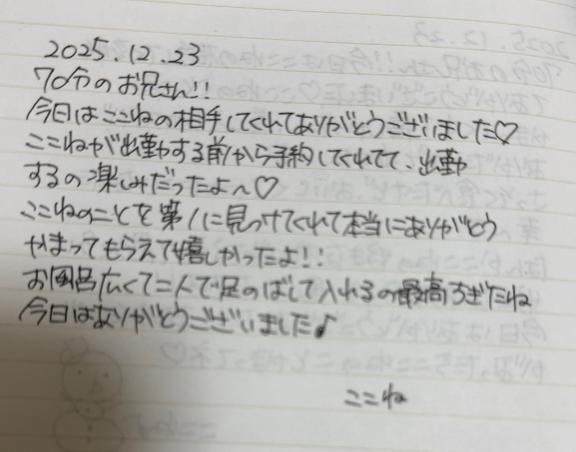 2025.12.23
70分のお兄さん!!
今日はここねの相手してくれてありがとうございました♡
ここねが出勤する前から予約してくれてて、出勤
するの楽しみだったよ〜♡
ここねのことを第1に見つけてくれて本当にありがとう
かまってもらえて嬉しかったよ!!
お風呂広くて二人で足のばして入れるの最高すぎたね
今日はありがとうございました♪
ここね